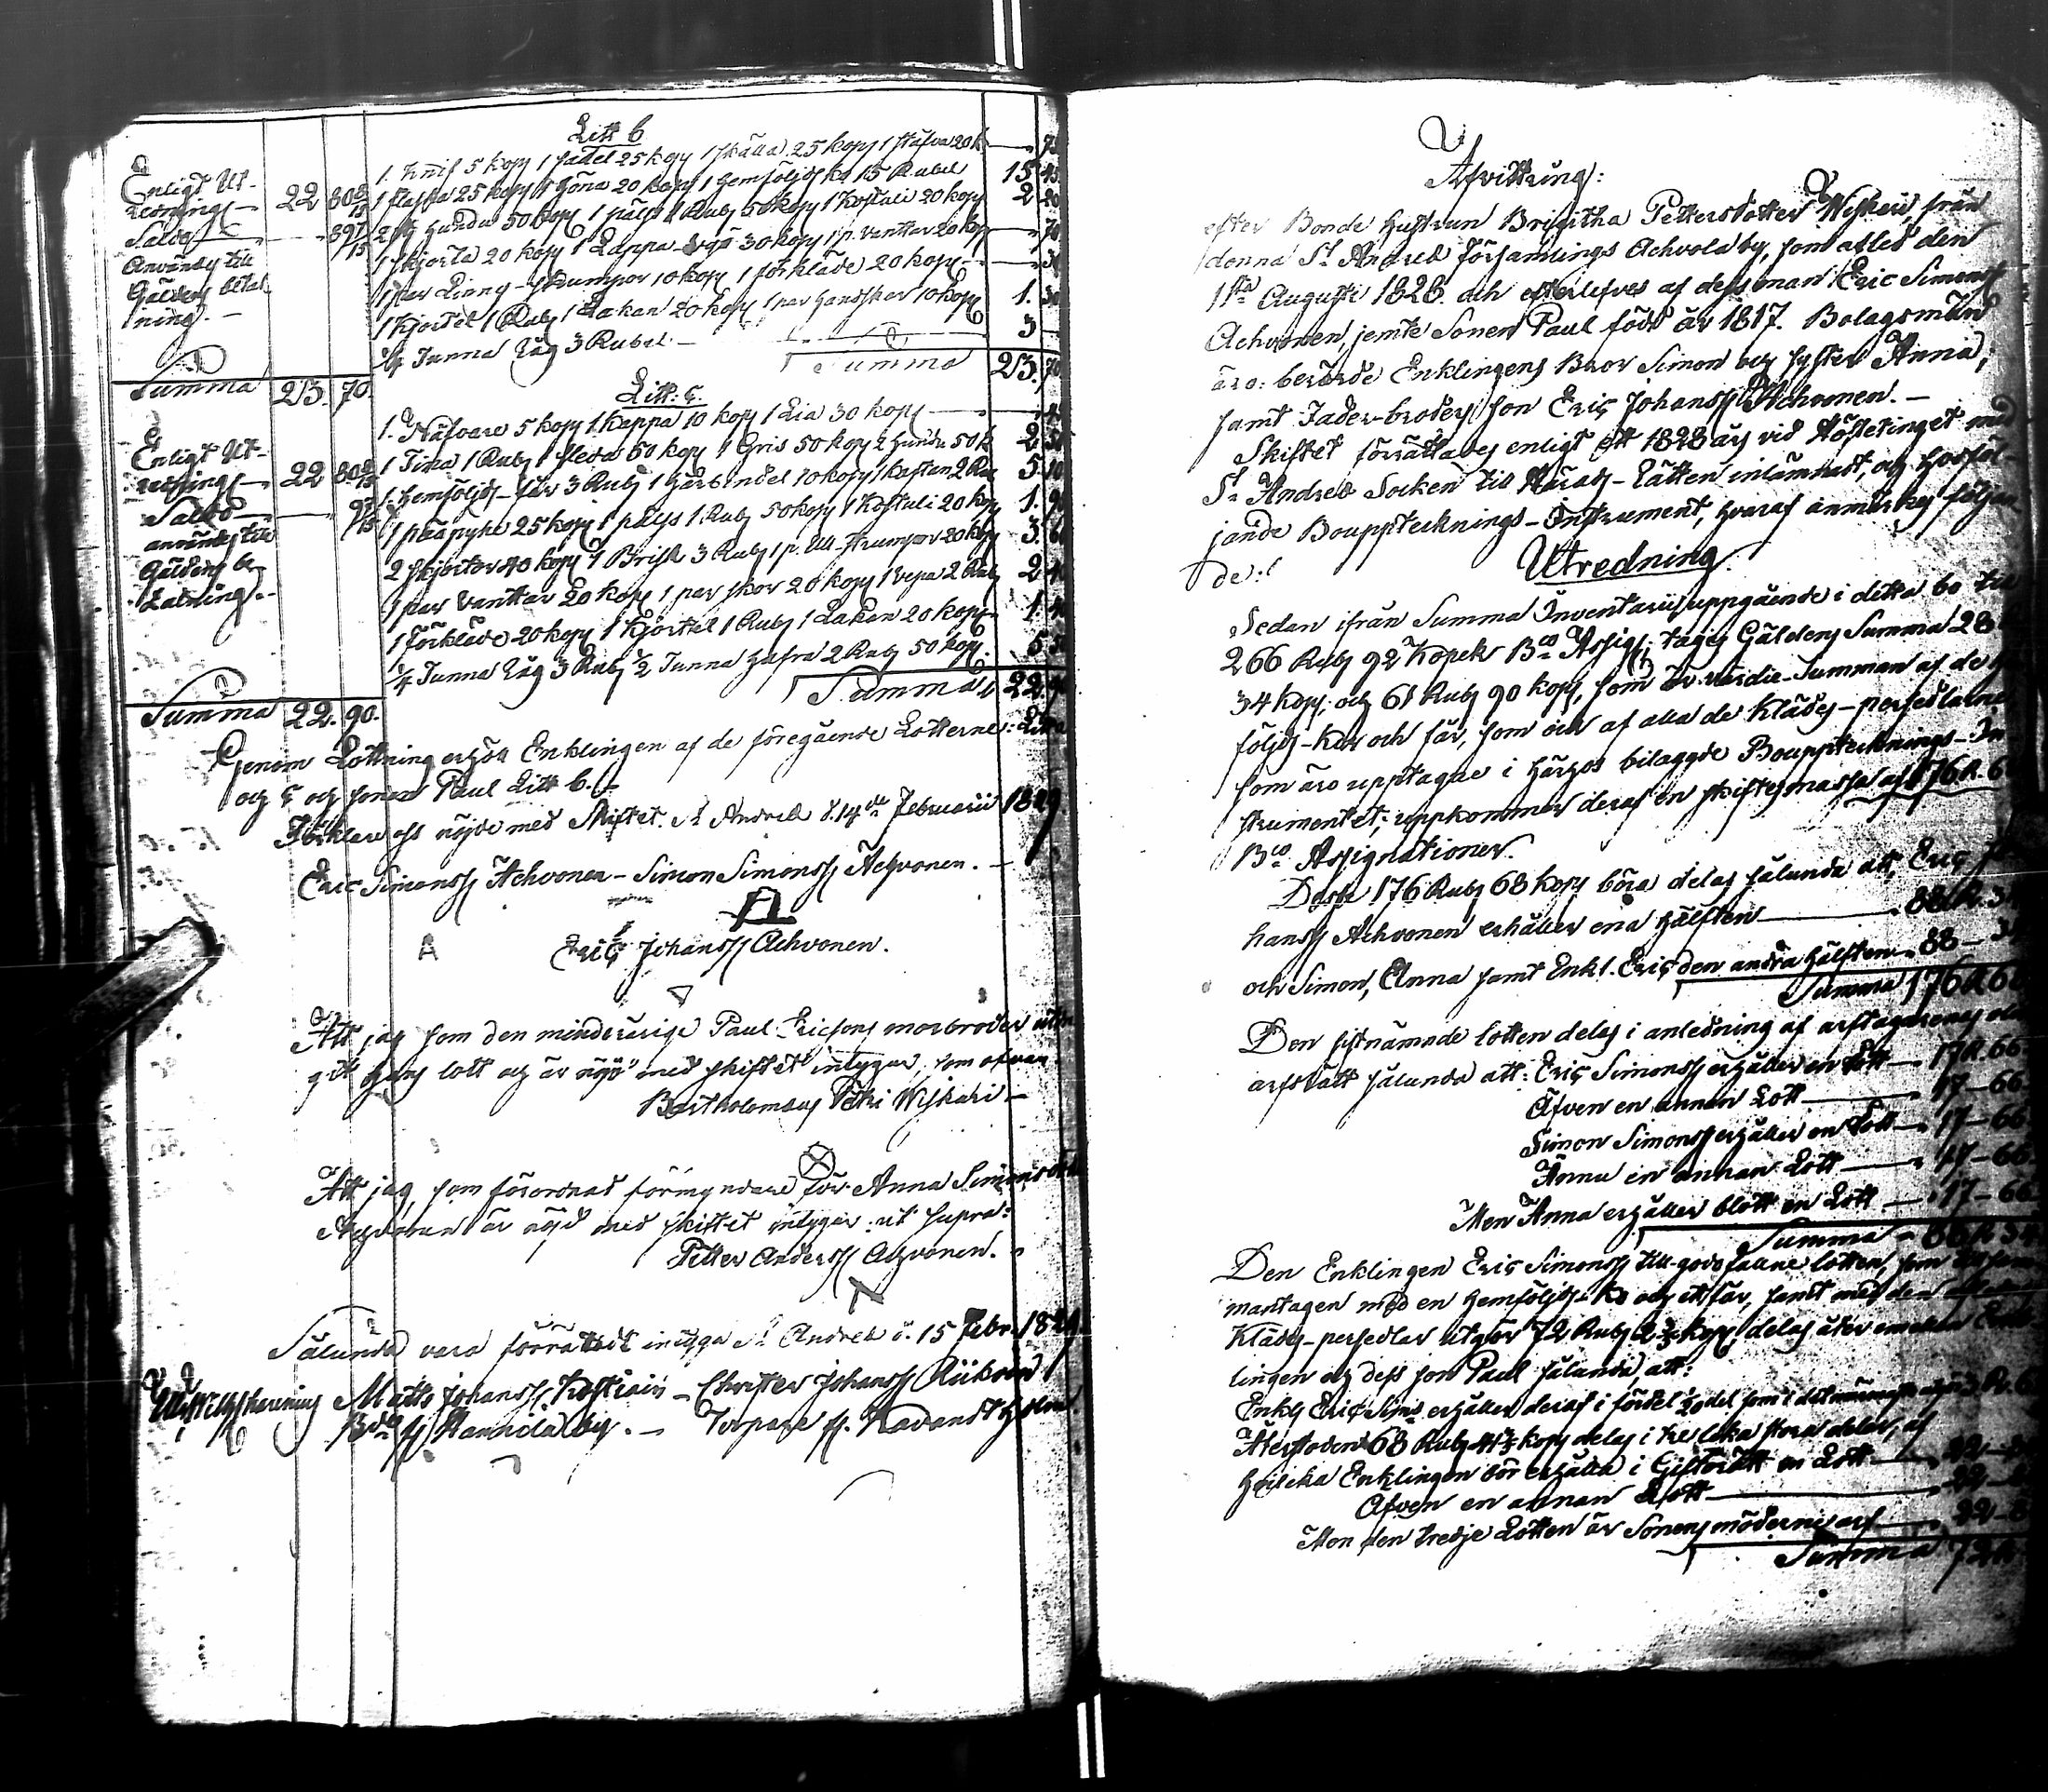 Litt b
1. Knif 5 kop 1 sadel 25 kop 1 skälla 25 kop 1 stäfva 20 k — 75
1 flaska 25 kop 1 Töna 20 kop 1 hemföljds ko 15 Rubel 15 45
2 st hundu 50 kop 1 pälss 1 Rub 50 kop 1 Kostuli 20 kop 2 20
1 skjorta 20 kop 1 Lappa 30 kop 1 p. vanttar 20 kop — 70
1 par Linng-strumpor 10 kop 1 förkläde 20 kop — 30
1 Kjortel 1 Rub 1 Lakan 20 kop 1 par handskar 10 kop 1. 30
1/4 Tunna Råg 3 Rubel. — 3 —
Summa 23. 70
Enligt Ut-
redning — 22 802/15
Saldo — 897/15
Användes till
Gäldens betal-
ning. —
Summa 23. 70.
Litt: c.
1. Näfvare 5 kop 1 Kappa 10 kop 1 Lia 30 kop — 45
1 Tina 1 Rub 1 sleda 50 kop 1 Gris 50 kop 2 hundu 50 k 2 50
1. hemföljds-får 3 Rub 1 Gårbindel 10 kop 1 kaftan 2 Rub 5 10
1 påapyke 25 kop 1 pälss 1 Rub 50 kop 1 Kostuli 20 kop 1. 95
2 skjortor 40 kop 1 Brisk 3 Rub 1 p. Ull-strumpor 20 kop 3. 60
1 par Vanttar 20 kop 1 par skor 20 kop 1 Vepa 2 Rub 2 40
1 förkläde 20 kop 1 Kjortel 1 Rub 1 Lakan 20 kop 1. 40
1/4 Tunna Råg 3 Rub 1/2 Tunna hafra 2 Rub 50 kop. 5 50
Summa 22. 90
Enligt Ut-
redning — 22 802/15
Saldo — 97/15
användes till
Gäldens be-
talning. —
Summa 22. 90.
Genom Lottning erhöll Enklingen af de föregående Lotterne: Litt a
och c och sonen Paul Litt b. —
Förklare oss nöjde med skiftet. St Andreæ d. 14de Februarii 1829
Eric Simonss Achvonen — Simon Simonss Achvonen. —
Eric Johanss Achvonen.
Att jag som den minderårige Paul Ericsons morbroder
git hans lott och är nöjd med skiftet intygar, som ofvan.
Bartholomæus Petri Wiskari —
Att jag, som förordnad förmyndare för Anna Simonsdotter
Achvonen är nöjd med skiftet intygar: ut supra:
Petter Anderss Achvonen.
Sålunda vara förrättadt intyga St Andreæ d. 15 Febr. 1829.
Matts Johanss Kostiain — Christer Johanss Riikoin
Bde fr Kannila by. — Torpare fr. Kavandtholm.
Afvittring:
efter Bonde hustrun Brigitha Pettersdotter Wiskari, från
denna St Andreæ Församlings Achvola by, som afled den
1sta Augusti 1828. och efterlefves af dess man Eric Simonss
Achvonen, jemte Sonen Paul född år 1817. Bolagsmän
äro: berörde Enklingens Bror Simon och syster Anna,
samt Fader-broders son Eric Johanss Achvonen. —
Skiftet förrättades enligt ett 1828 års vid Höstetinget med
St Andreæ Socken till Härads-Rätten inlämnadt, och hosföl-
jande Bouppteckningsinstrument, hvaraf anmärkes följan-
de:
Utredning.
Sedan ifrån Summa Inventarii uppgående i detta bo till
266 Rub 92 Kopek Bco Assign; tages Gäldens Summa 28
34 kop, och 61 Rub 90 kop, som är värdie-Summan af de
följds-kor och får, som och af alla de Klädes-persedlarne
som äro upptagne i härhos bilagde Bouppteknings-In-
strumentet; uppkommer deraf en skiftesmassa af 176 R. 6
Bco Assignationer.
Desse 176 Rub 68 kop böra delas sålunda att, Eric Jo-
hanss Achvonen erhåller ena hälften — 88 R. 34
och Simon, Anna samt Enkl. Eric den andra hälften — 88 — 34
Summa 176 R. 68
Den sistnämnde lotten delas i anledning af arftagarenes olika
arfsrätt sålunda att: Eric Simonss erhåller en Lott — 17 R. 66
Äfven en annan Lott — 17 — 66
Simon Simonss erhåller en Lott — 17 — 66
Ännu en annan Lott — 17 — 66
Men Anna erhåller blott en Lott — 17 — 66
Summa — 88 R 34
Den Enklingen Eric Simonss till-godo fallne lotten, som
mantagen med en hemföljds-ko och ett får, samt med den
Klädes-persedlar utgör 72 Rub kop, delas åter emellan Enk-
lingen och dess son Paul sålunda, att:
Enkl Eric Sims erhåller deraf i fördel 1/20 del som
Återstoden 68 Rub kop delas i tre lika stora delar, af
hvilka Enklingen bör erhålla i Giftorätt en Lott — 22 —
Äfven en annan Lott — 22 —
Men den tredje Lotten är Sonens möderne arf — 22 —
Summa 72 R.